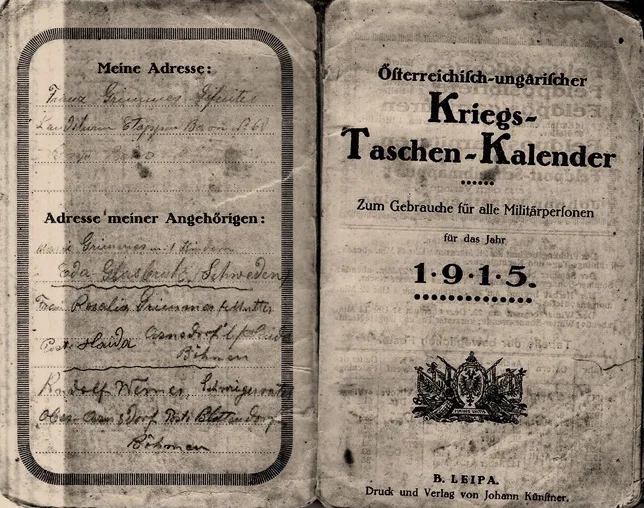 Meine Adresse:
Franz
Landsturm Etappen Baon № 60
Adresse meiner Angehörigen:
Eda Glasbruk, Schweden
Frau Rosalia Mutter
Arnsdorf b/
Post: Haida
Böhmen
Rudolf Werner, Schwiegervater
Ober Arnsdorf Post: Blottendorf
Böhmen
Öſterreichiſch-ungariſcher
Kriegs-
Taschen-Kalender
Zum Gebrauche für alle Militärperſonen
für das Jahr
1·9·1·5.
B. LEIPA.
Druck und Verlag von Johann Künſtner.